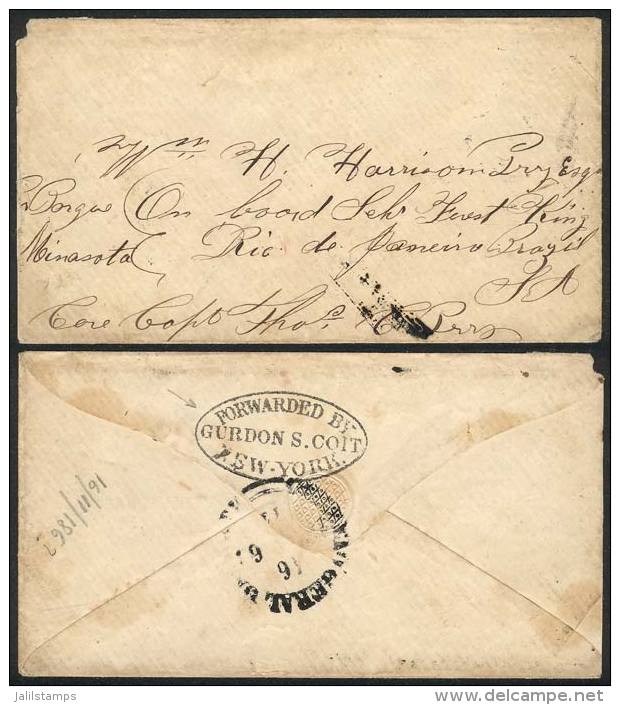 Wm H. Harrison Esqr
Barque (On board Schr Forest King
Minasota ( Rio de Janeiro Brazil
S A
Care Capt Thos
FORWARDED BY
GURDON S. COIT
NEW-YORK.
GERAL
16/11/1862
jalilstamps
delcampe.net